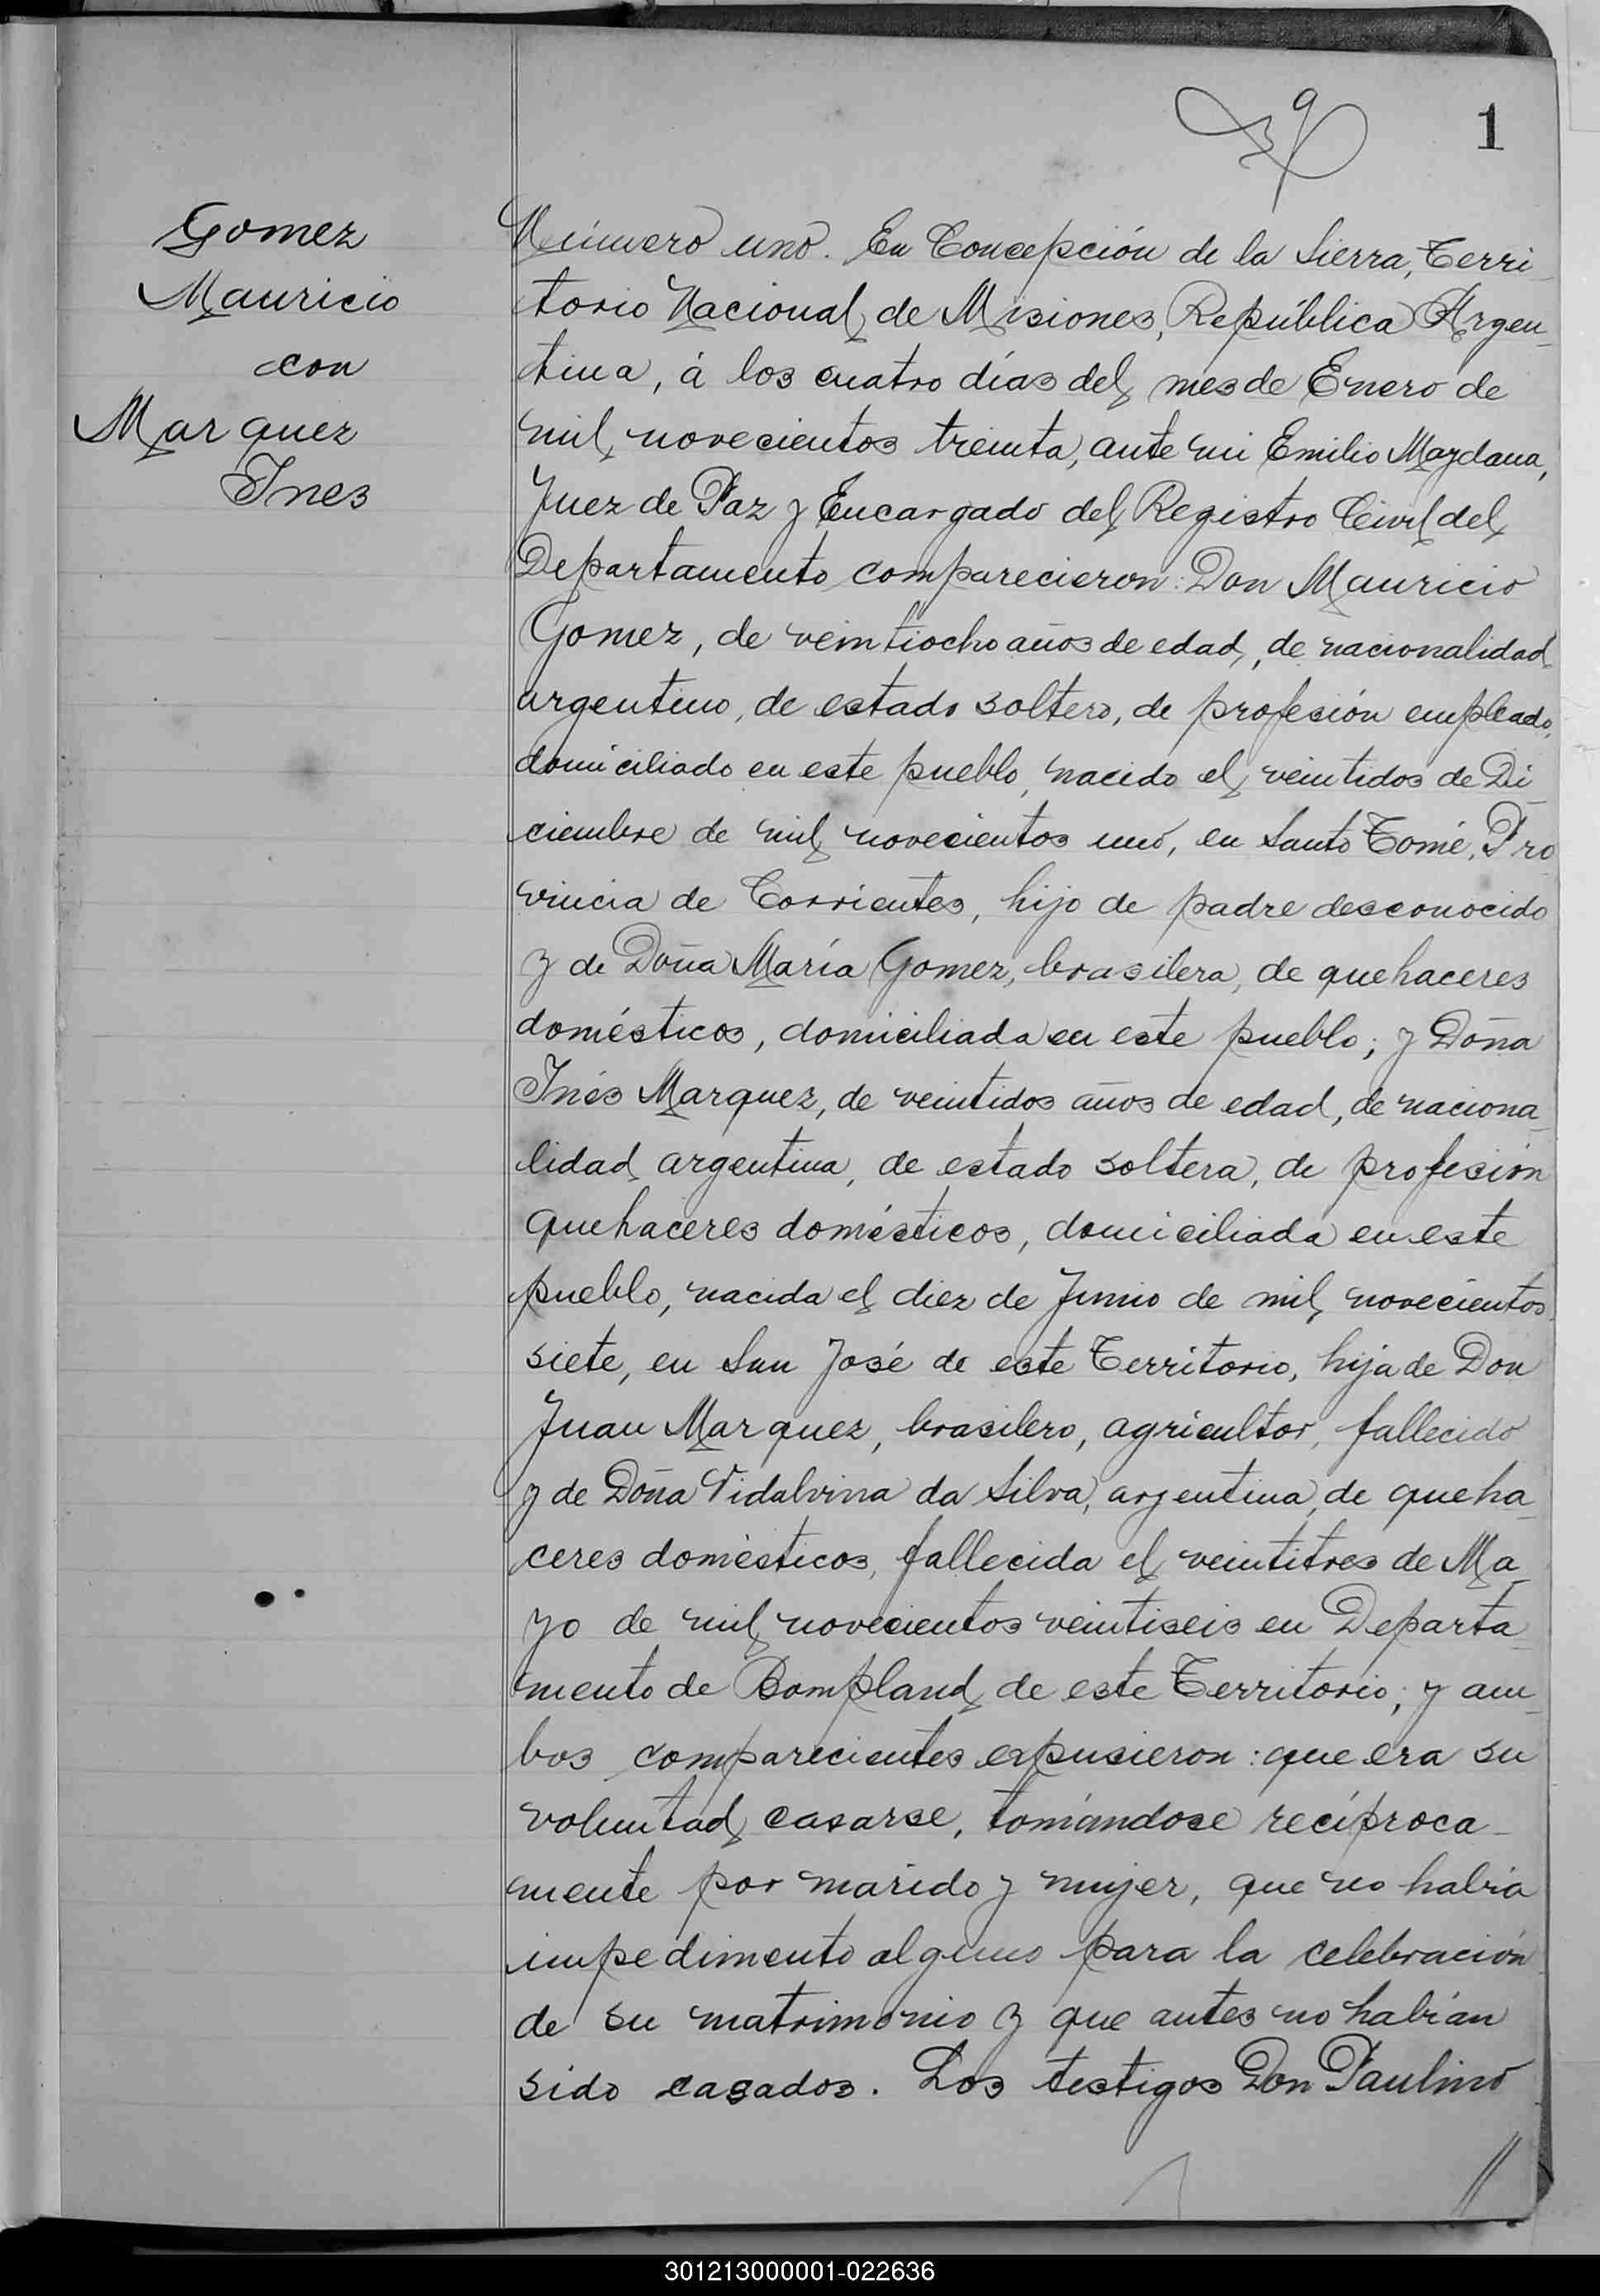 1
Gomez
Mauricio
con
Marquez
Ines
Número uno. En Concepción de la Sierra, Terri
torio Nacional de Misiones, República Argen-
tina, á los cuatro días del mes de Enero de
mil novecientos treinta, ante mi Emilio Magdana,
Juez de Paz y Encargado del Registro Civil del
Departamento comparecieron: Don Mauricio
Gomez, de veintiocho años de edad, de nacionalidad
argentino, de estado soltero, de profesión empleado,
domiciliado en este pueblo, nacido el veintidos de Di
ciembre de mil novecientos uno, en Santo Tomé, Pro
vincia de Corrientes, hijo de padre desconocido
y de Doña María Gomez, brasilera, de quehaceres
domésticos, domiciliada en este pueblo; y Doña
Inés Marquez, de veintidos años de edad, de naciona-
lidad argentina, de estado soltera, de profesión
quehaceres domésticos, domiciliada en este
pueblo, nacida el diez de Junio de mil novecientos
siete, en San José de este Territorio, hija de Don
Juan Marquez, brasilero, agricultor, fallecido
y de Doña Vidalvina da Silva, argentina, de queha-
ceres domésticos, fallecida el veintitres de Ma-
yo de mil novecientos veintiseis en Departa-
mento de Bompland de este Territorio; y am-
bos comparecientes expusieron: que era su
voluntad casarse, tomándose recíproca-
mente por marido y mujer, que no había
impedimento alguno para la celebración
de su matrimonio y que antes no habían
sido casados. Los testigos Don Paulino
//
301213000001-022636